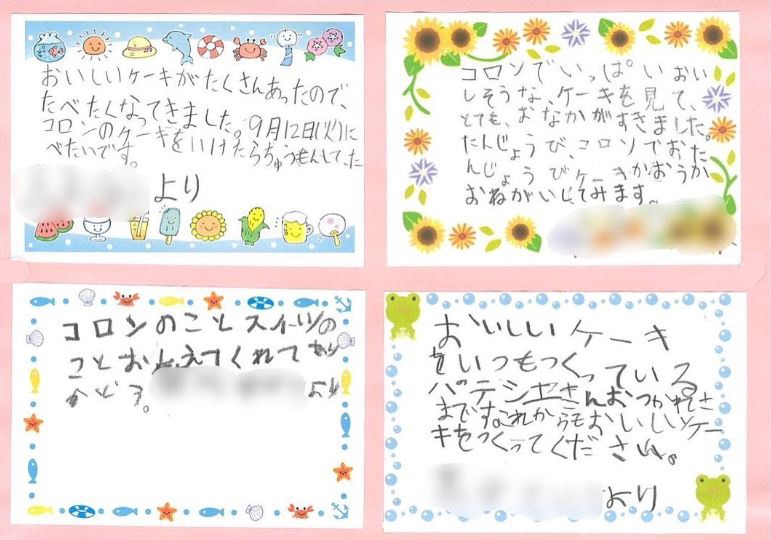 おいしいケーキがたくさんあったので、
たべたくなってきました。9月12日(火)に
コロンのケーキをいけたらちゅうもんしてた
べたいです。
より
コロンでいっぱいおい
しそうな、ケーキを見て、
とても、おなかがすきました。
たんじょうび、コロンでおた
んじょうびケーキかおうか
おねがいしてみます。
コロンのことスイーツの
ことおしえてくれてあり
がとう。
より
おいしいケーキ
をいつもつくっている
パティシエさんおつかれさ
まです。これからもおいしいケー
キをつくってください。
より